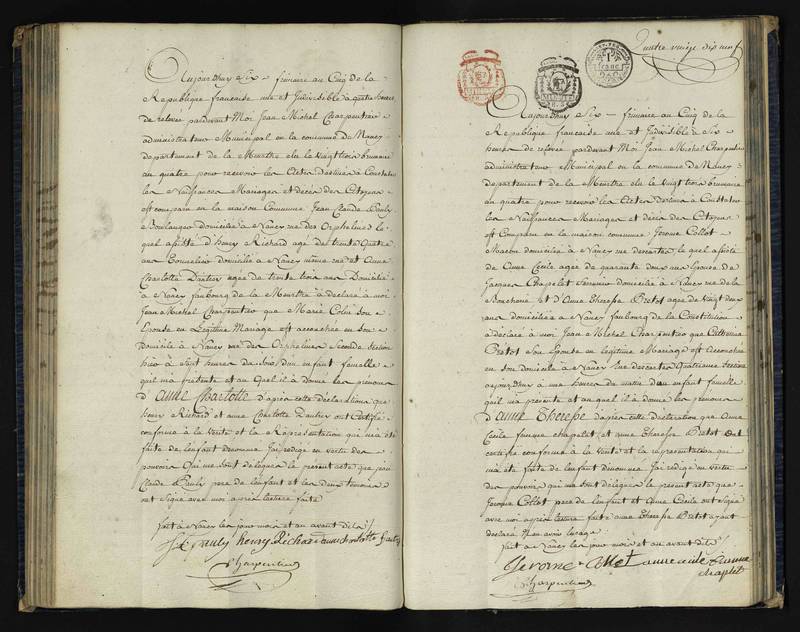 Aujourd'huy Six frimaire an Cinq de la
Republique francaise une et Indivisible à quatre heures
de relevée pardevant Moi Jean Michel Charpentier
administrateur Municipal en la commune de Nancy
departement de la Meurthe elu le vingt trois brumaire
an quatre pour recevoir les Actes destinés à Constater
les Naissances Mariages et décès des Citoyens
est comparu en la maison Commune Jean Claude Pauly
Boulanger domicilié à Nancy rue des Orphelines le
quel assisté d'henry Richard agé de trente quatre
ans domicilié à Nancy même rue et Anne
Charlotte Dautrey agée de trente trois ans Domiciliée
à Nancy faubourg de la Meurthe à déclaré à moi
Jean Michel Charpentier que Marie Colin Son
Epouse en Légitime Mariage est accouchée en Son
Domicile à Nancy rue des Orphelines Seconde Section
hier à Sept heures du Soir d'un enfant femelle
quil ma présenté et au Quel il à donné les prenoms
d'anne Charlotte d'après cette déclaration que
henry Richard et anne Charlotte Dautrey ont Certifié
conforme à la Vérité et la Représentation qui ma été
faite de lenfant dénommé Jai rédigé en vertu des
pouvoirs Qui me Sont délégués le présent acte que Jean
Claude Pauly pere de lenfant et les deux temoins
ont Signé avec moi après lecture faite
fait à Nancy les jour mois et an avant dits
Pauly henry Richard anne charlotte Dautrey
Charpentier
Quatre vingt dix neuf
Aujourd'huy Six frimaire an Cinq de la
Republique francaise une et Indivisible à Six
heures de relevée pardevant Moi Jean Michel Charpentier
administrateur Municipal en la commune de Nancy
departement de la Meurthe elu le vingt trois brumaire
an quatre pour recevoir les Actes destinés à Constater
les Naissances Mariages et décès des Citoyens
est Comparu en la maison commune Jerome Collot
Macon domicilié à Nancy rue descartes le quel assisté
de Anne Cecile agée de quarante deux ans Epouse de
Jacques Chapelet Serrurier domicilié à Nancy rue de la
et d'Anne theresse Pretot agée de vingt deux
ans domiciliée à Nancy faubourg de la Constitution
a déclaré à moi Jean Michel Charpentier que Catherine
Pretot Son Epouse en legitime Mariage est accouchée
en Son domicile à Nancy rue descartes Quatrieme Section
aujourdhuy à une heure du matin d'un enfant femelle
quil ma présenté et au quel il à donné les prenoms
d'anne therese dapres cette déclaration que Anne
Cecile femme chapelet et anne therese Pretot ont
certifié conforme à la Vérité et la représentation qui
ma été faite de lenfant dénommé Jai rédigé en vertu
des pouvoirs qui me sont délégués le présent acte que
Jerome Collot pere de lenfant et Anne Cecile ont Signé
avec moi après lecture faite anne therese Pretot ayant
déclaré N'en avoir lusage
fait à Nancy les jour mois et an avant dits
Jerome Collot anne cecile femme
chaplet
Charpentier